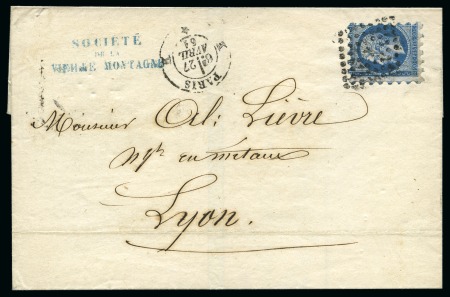 SOCIÉTÉ
DE LA
VIEILLE MONTAGNE
PARIS
6E
27
AVRIL
64
Monsieur Al: Lièvre
Mgt en métaux
Lyon.